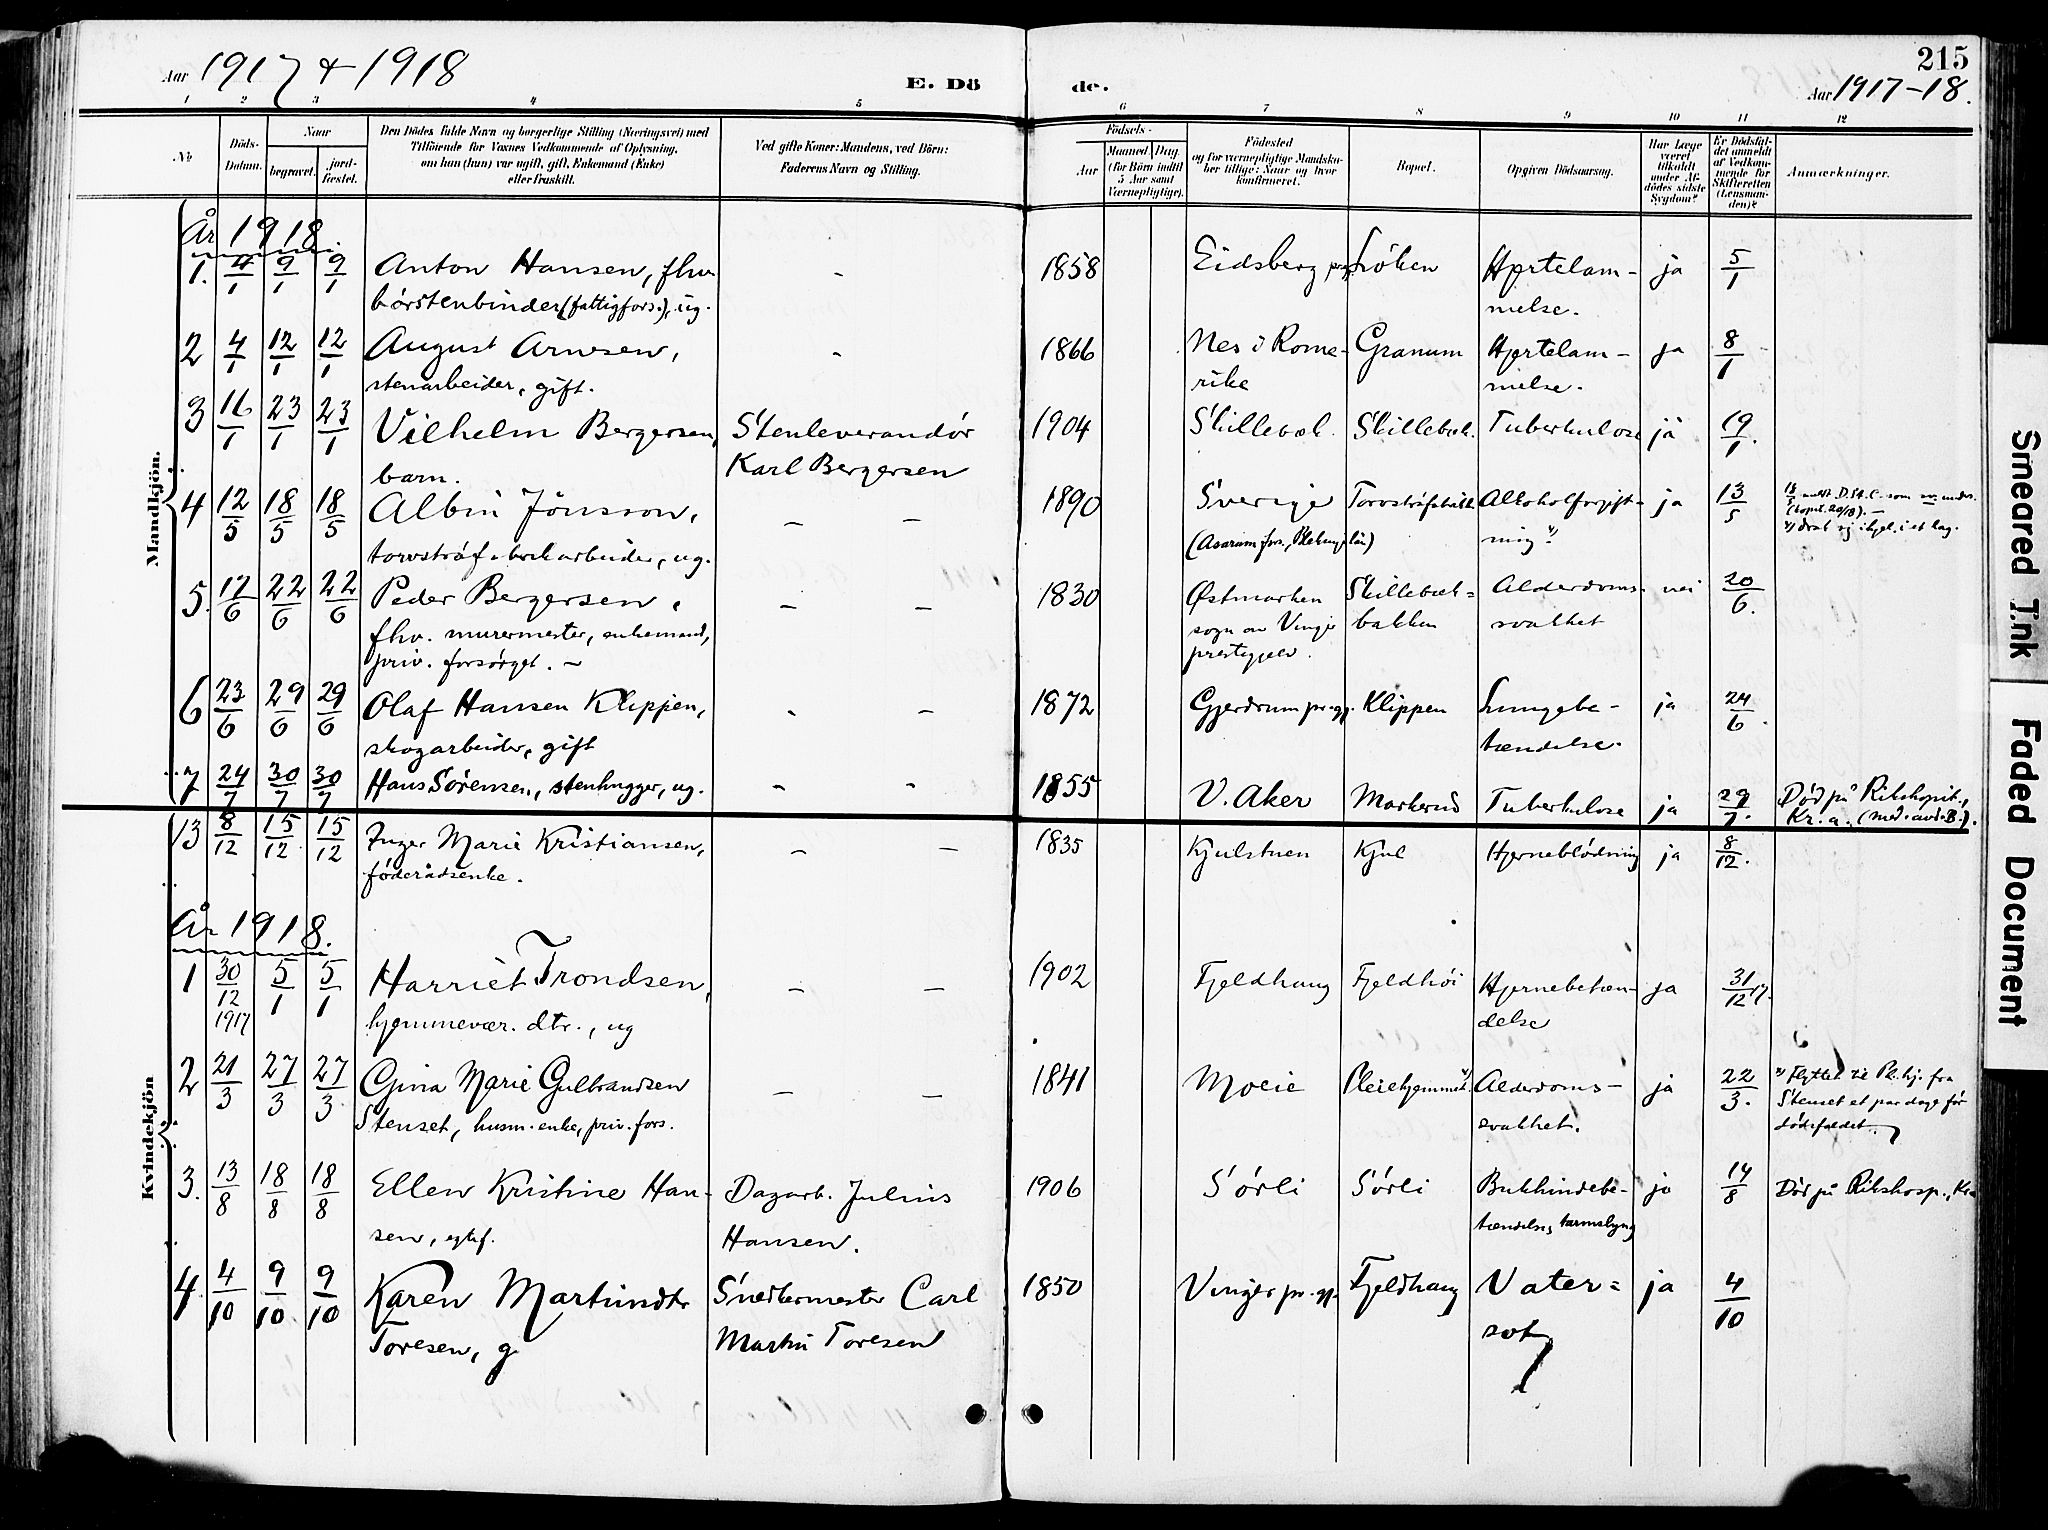 215
Aar 1917 & 1918
E. Dö
de.
Aar 1917-18.
1 2 3 4 5 6 7 8 9 10 11 12
No Döds-Datum. Naar begravet. jord-fæstet. Den Dödes fulde Navn og borgerlige Stilling (Næringsvei) med Tilföiende for Voxnes Vedkommende af Oplysning, om han (hun) var ugift, gift, Enkemand (Enke) eller fraskilt. Ved gifte Koner: Mandens, ved Börn: Faderens Navn og Stilling. Födsels- Aar Maaned Dag. (for Börn indtil 5 Aar samt Værnepligtige). Födested og for værnepligtige Mandskaber tillige: Naar og hvor konfirmeret. Bopæl. Opgiven Dödsaarsag. Har Læge været tilkaldt under Afdödes sidste Sygdom? Er Dödsfaldet anmeldt af Vedkommende for Skifteretten (Lensmanden)? Anmærkninger.
Mandkjön.
År 1918.
1. 4/1 9/1 9/1 Anton Hansen, fhv. - 1858 Eidsberg prgj. Löken Hjertelam- ja 5/1
börstenbinder (fattigfors.), ug. melse.
2 4/1 12/1 12/1 August Arnesen, - 1866 Nes i Rome- Granum Hjertelam- ja 8/1
stenarbeider, gift. rike melse.
3 16/1 23/1 23/1 Vilhelm Bergersen, Stenleverandör 1904 Skillebæk. Skillebæk. Tuberkulose ja 19/1.
barn. Karl Bergersen
4 12/5 18/5 18/5 Albin Jönsson, - - 1890 Sverige Torvströfabrik Alkoholforgift- ja 13/5
torvströfabrikarbeider, ug. (Asarum fors., Blekinge län) ning
5. 17/6 22/6 22/6 Peder Bergersen, - - 1830 Østmarken Skillebæk- Alderdoms- nei 20/6.
fhv. murermester, enkemand, sogn av Vinger bakken svakhet
priv. forsörget. - prestegjeld.
6 23/6 29/6 29/6 Olaf Hansen Klippen, - - 1872 Gjerdrum prgj. Klippen Lungebe- ja 24/6.
skogarbeider, gift tændelse.
7 24/7 30/7 30/7 Hans Sörensen, stenhugger, ug. - - 1855 V. Aker Markerud Tuberkulose ja 29/7. Död på Rikshospit.,
Kr.a. (med. avd. B.).
Kvindekjön
13 8/12 15/12 15/12 Inger Marie Kristiansen, - - 1835 Kjulstuen Kjul Hjerneblödning ja 8/12.
föderådsenke.
År 1918.
1 30/12 1917 5/1 5/1 Harriet Trondsen, - - 1902 Fjeldhaug Fjeldhöi Hjernebetæn- ja 31/12 17.
hjemmevær. dtr., ug delse
2 21/3 27/3 27/3 Gina Marie Gulbrandsen - - 1841 Moeie Pleiehjemmet 1) Alderdoms- ja 22/3. 1) Flyttet til Pl.hj. fra
Stenset, husm. enke, priv. fors. svakhet. Stenset et par dage før
dödsfaldet.
3. 13/8 18/8 18/8 Ellen Kristine Han- Dagarb. Julius 1906 Sörli Sörli Bukhindebe- ja 14/8 Död på Rikshosp., Kra
sen, egtef. Hansen. tændelse, tarmslyng
4 4/10 9/10 9/10 Karen Martinsdtr Snedkermester Carl 1850 Vinger pr.gj. Fjeldhaug Vater- ja 4/10
Toresen, g Martin Toresen sot
Smeared Ink
Faded Document